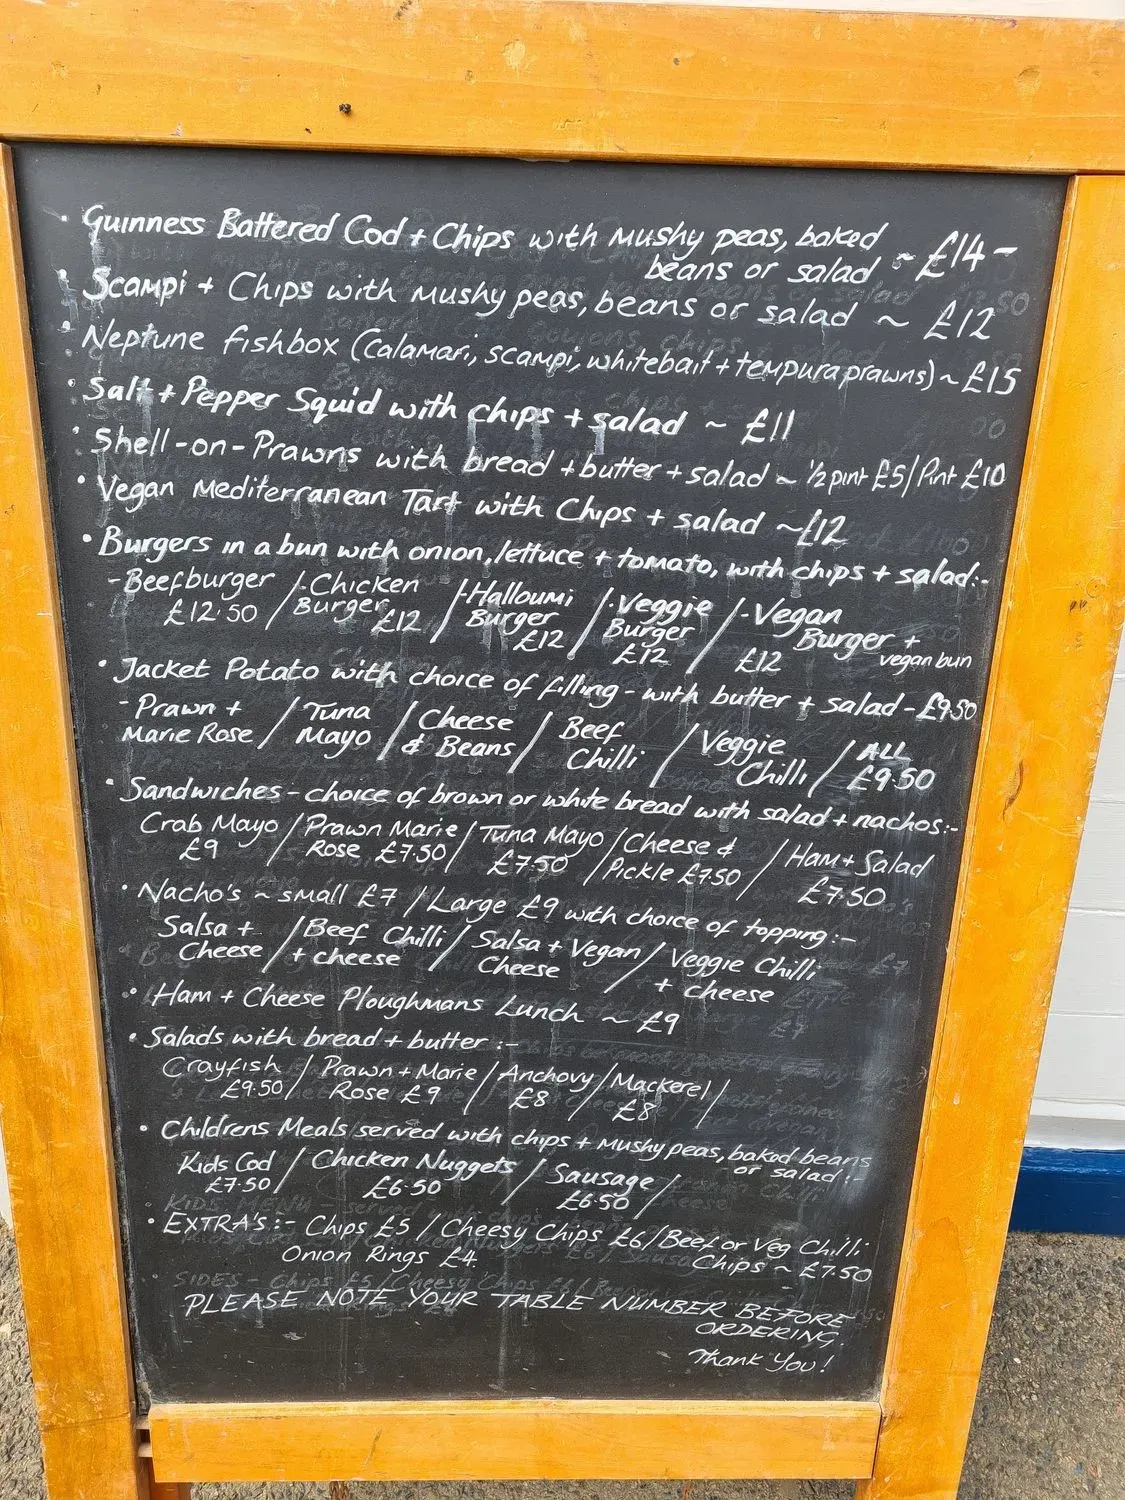 · Guinness Battered Cod + Chips with mushy peas, baked
beans or salad ~ £14 -
· Scampi + Chips with mushy peas, beans or salad ~ £12
· Neptune fishbox (Calamari, scampi, whitebait + tempura prawns) ~ £15
· Salt + Pepper Squid with chips + salad ~ £11
· Shell-on-Prawns with bread + butter + salad ~ 1/2 pint £5/Pint £10
· Vegan Mediterranean Tart with Chips + salad ~ £12
· Burgers in a bun with onion, lettuce + tomato, with chips + salad:-
- Beefburger / - Chicken / - Halloumi / - Veggie / - Vegan
£12.50 Burger £12 Burger £12 Burger £12 £12 Burger + vegan bun
· Jacket Potato with choice of filling - with butter + salad - £9.50
- Prawn + / Tuna / Cheese / Beef / Veggie / ALL
Marie Rose Mayo & Beans Chilli Chilli £9.50
· Sandwiches - choice of brown or white bread with salad + nachos:-
Crab Mayo / Prawn Marie / Tuna Mayo / Cheese & / Ham + Salad
£9 Rose £7.50 £7.50 Pickle £7.50 £7.50
· Nacho's ~ small £7 / Large £9 with choice of topping:-
Salsa + / Beef Chilli / Salsa + Vegan / Veggie Chilli
Cheese + cheese Cheese + cheese
· Ham + Cheese Ploughmans Lunch ~ £9
· Salads with bread + butter :-
Crayfish / Prawn + Marie / Anchovy / Mackerel /
£9.50 Rose £9 £8 £8
· Childrens Meals served with chips + mushy peas, baked beans
or salad:-
Kids Cod / Chicken Nuggets / Sausage /
£7.50 £6.50 £6.50
· EXTRA'S:- Chips £5 / Cheesy Chips £6 / Beef or Veg Chilli
Onion Rings £4. Chips ~ £7.50
PLEASE NOTE YOUR TABLE NUMBER BEFORE
ORDERING.
Thank You!